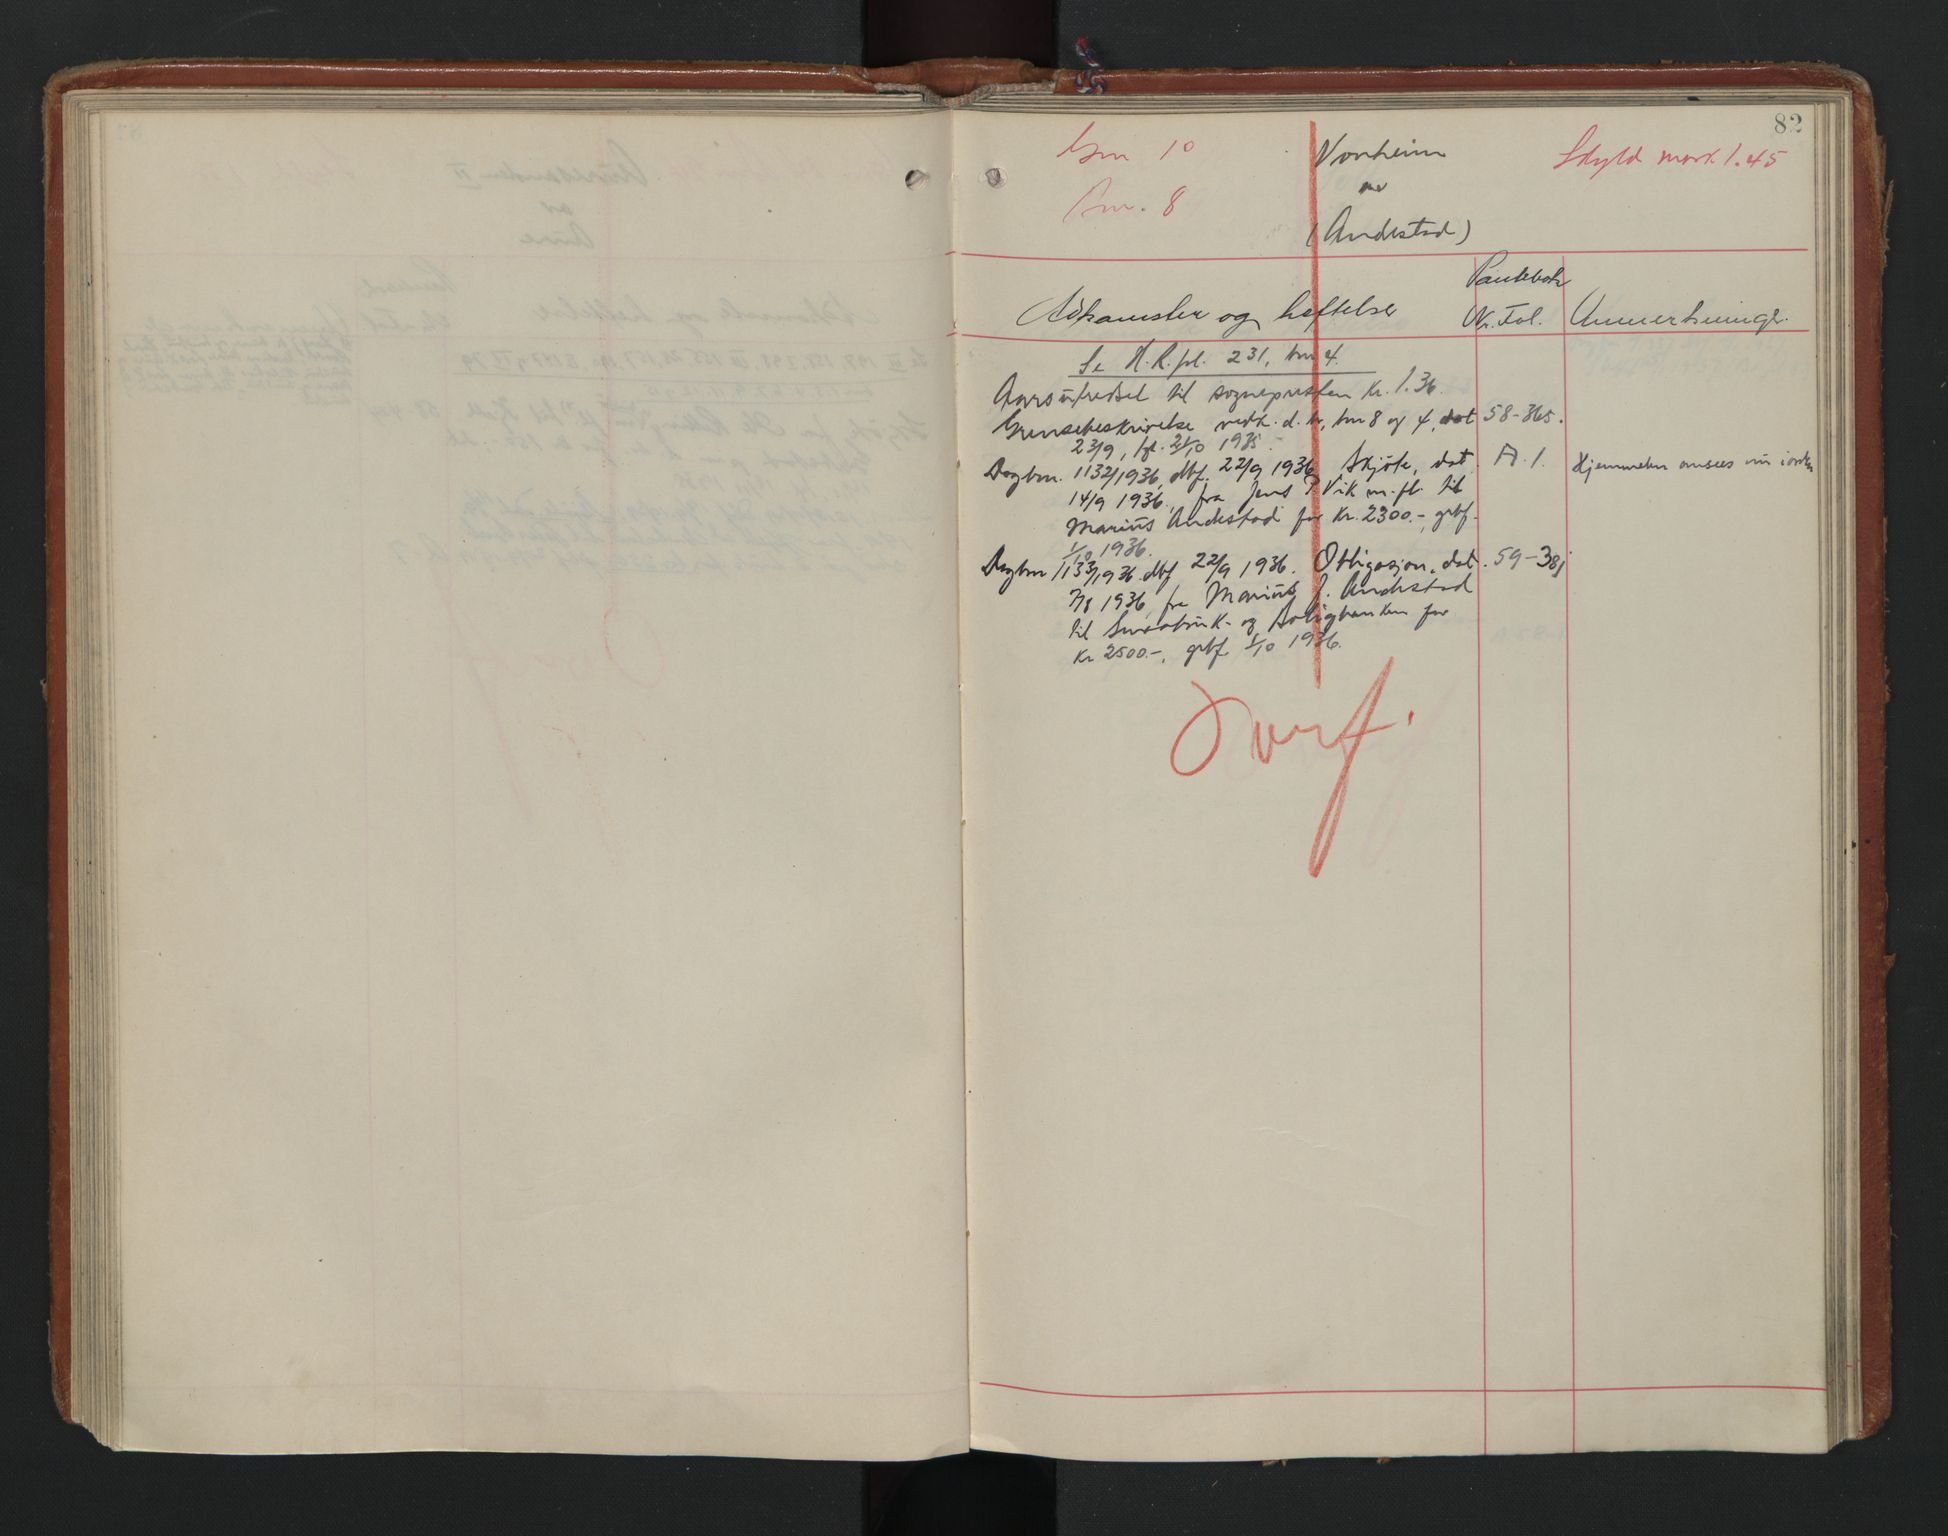 82
Gnr 10
Vonheim
Skyld mark 1.45
av
Bnr. 8
(Andestad)
Pantebok
Adkomster og heftelser
Nr. Fol.
Anmerkninger.
Se H.R. fol. 231, bnr 4.
Aarsutredsel til sognepresten kr. 1.36.
Grensebeskrivelse vedk. d. br, bnr 8 og 4, dat
58-365.
23/9, tgl. 21/10 1935.
Dagbnr. 1132/1936, dbf. 22/9 1936, Skjøte, dat.
A. 1.
Hjemmelen ansees nu i orden
14/9 1936, fra Jens P Vik m. fl. til
Marius Andestad for kr. 2300.-, grbf.
1/10 1936.
Dagbnr 1133/1936 dbf 22/9 1936. Obligasjon, dat.
59-381
7/8 1936, fra Marius J. Andestad
til Småbruk- og Boligbanken for
kr 2500.-, grbf. 1/10 1936.
Overf.